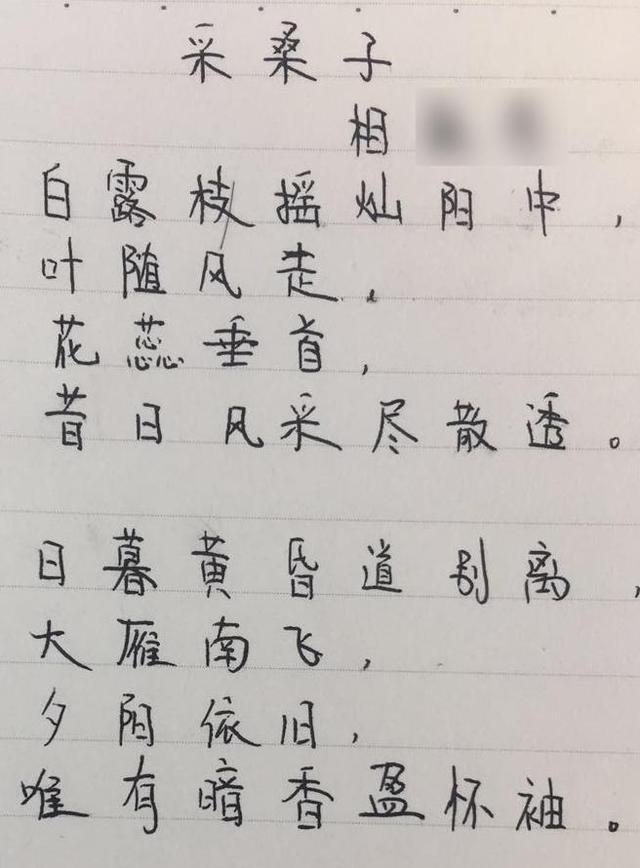 采桑子
相
白露枝摇灿阳中，
叶随风走，
花蕊垂首，
昔日风采尽散透。
日暮黄昏道别离，
大雁南飞，
夕阳依旧，
唯有暗香盈怀袖。